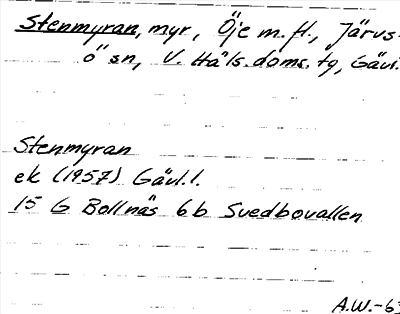 Stenmyran, myr, Öje m.fl., Järvs-
ö sn, V. Häls. doms. tg, Gävl.
Stenmyran
ek (1957) Gävl.l.
15 G Bollnäs 6b Svedbovallen
A.W.-63